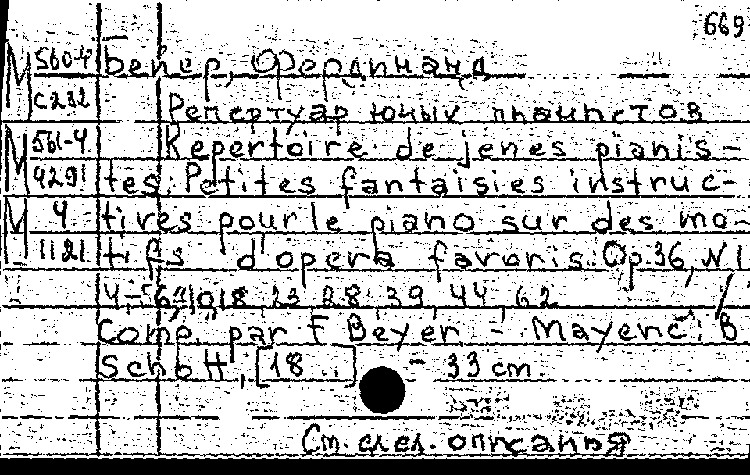 669
М 560-4 Бейер, Фердинанд
С232 Репертуар юных пианистов
М 561-4 Repertoire de jenes pianis-
9291 tes: Petites fantaisies instruc-
М 4 tives pour le piano sur des mo-
1121 tifs d'opera favoris. Op. 36, N 1,
18, 23, 28, 39, 44, 62 /
Comp. par F. Beyer - Mayence: B.
Schott, [18 ..] - 33 cm.
См. след. описания